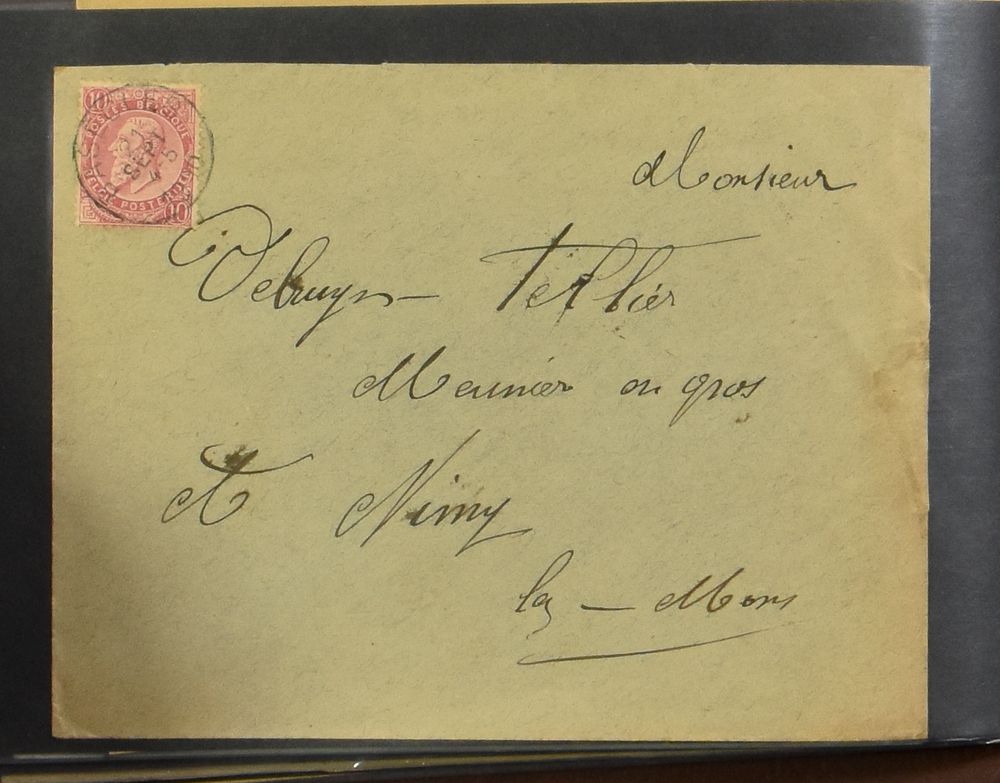 10
POSTES BELGIQUE
BELGIE POSTERIJEN
10
21
SEPT
4-5
Monsieur
Debruyn - Tellier
Meunier en gros
A Nimy
lez - Mons